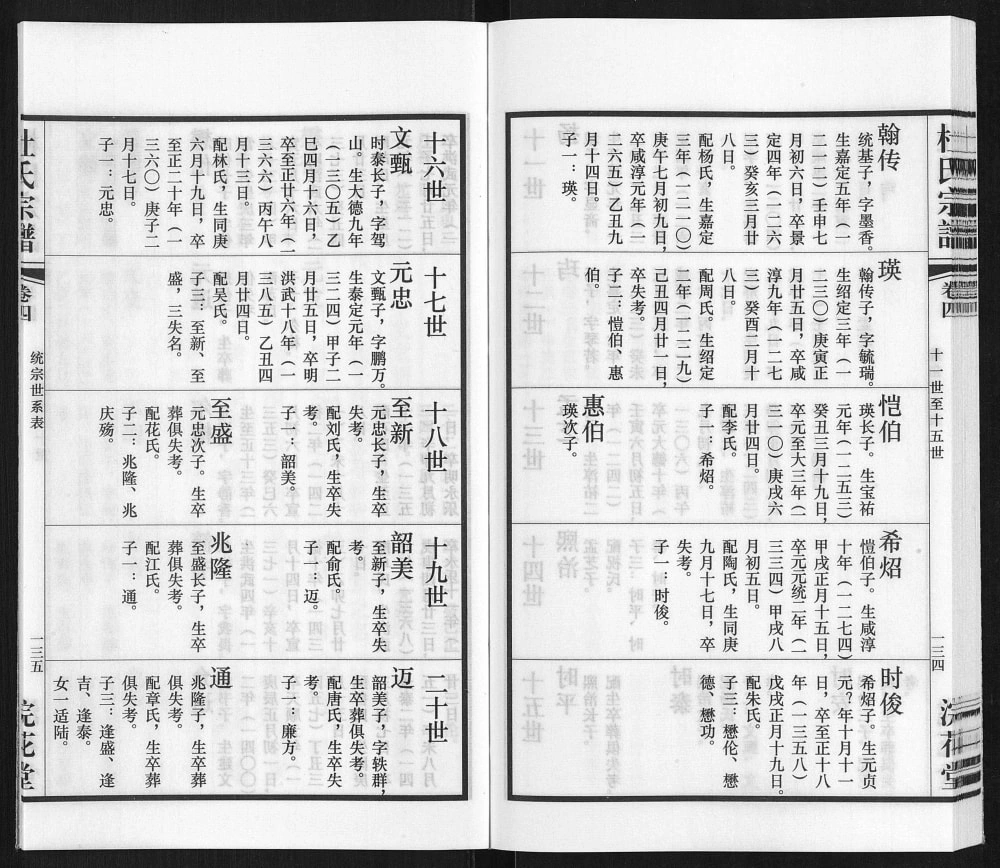 杜氏宗谱
卷四
十一世至十五世
一三四
浣花堂
翰传
统基子，字墨香。
生嘉定五年（一
二一二）壬申七
月初六日，卒景
定四年（一二六
三）癸亥三月廿
八日。
配杨氏，生嘉定
三年（一二一〇）
庚午七月初九日，
卒咸淳元年（一
二六五）乙丑九
月十四日。
子一：瑛。
瑛
翰传子，字毓瑞。
生绍定三年（一
二三〇）庚寅正
月廿五日，卒咸
淳九年（一二七
三）癸酉二月十
八日。
配周氏。生绍定
二年（一二二九）
己丑四月廿一日，
卒失考。
子二：恺伯、惠
伯。
恺伯
瑛长子。生宝祐
元年（一二五三）
癸丑三月十九日，
卒元至大三年（一
三一〇）庚戌六
月廿四日。
配李氏。
子一：希炤。
惠伯
瑛次子。
希炤
恺伯子。生咸淳
十年（一二七四）
甲戌正月十五日，
卒元元统二年（一
三三四）甲戌八
月初五日。
配陶氏，生同庚
九月十七日，卒
失考。
子一：时俊。
时俊
希炤子。生元贞
元？年十月十一
日，卒至正十八
年（一三五八）
戊戌正月十九日。
配朱氏。
子三：懋伦、懋
德、懋功。
十六世
文甄
时泰长子，字驾
山。生大德九年
（一三〇五）乙
巳四月十六日，
卒至正廿六年（一
三六六）丙午八
月十三日。
配林氏，生同庚
六月十九日，卒
至正二十年（一
三六〇）庚子二
月十七日。
子一：元忠。
十七世
元忠
文甄子，字鹏万。
生泰定元年（一
三二四）甲子二
月廿五日，卒明
洪武十八年（一
三八五）乙丑四
月廿四日。
配吴氏。
子三：至新、至
盛，三失名。
十八世
至新
元忠长子，生卒
失考。
配刘氏，生卒失
考。
子一：韶美。
至盛
元忠次子。生卒
葬俱失考。
配花氏。
子二：兆隆、兆
庆殇。
十九世
韶美
至新子，生卒失
考。
配俞氏。
子一：迈。
兆隆
至盛长子，生卒
葬俱失考。
配江氏。
子一：通。
二十世
迈
韶美子，字轶群，
生卒葬俱失考。
配唐氏，生卒失
考。
子一：廉方。
通
兆隆子，生卒葬
俱失考。
配章氏，生卒葬
俱失考。
子三：逢盛、逢
吉、逢泰。
女一适陆。
杜氏宗谱
卷四
统宗世系表
一三五
浣花堂